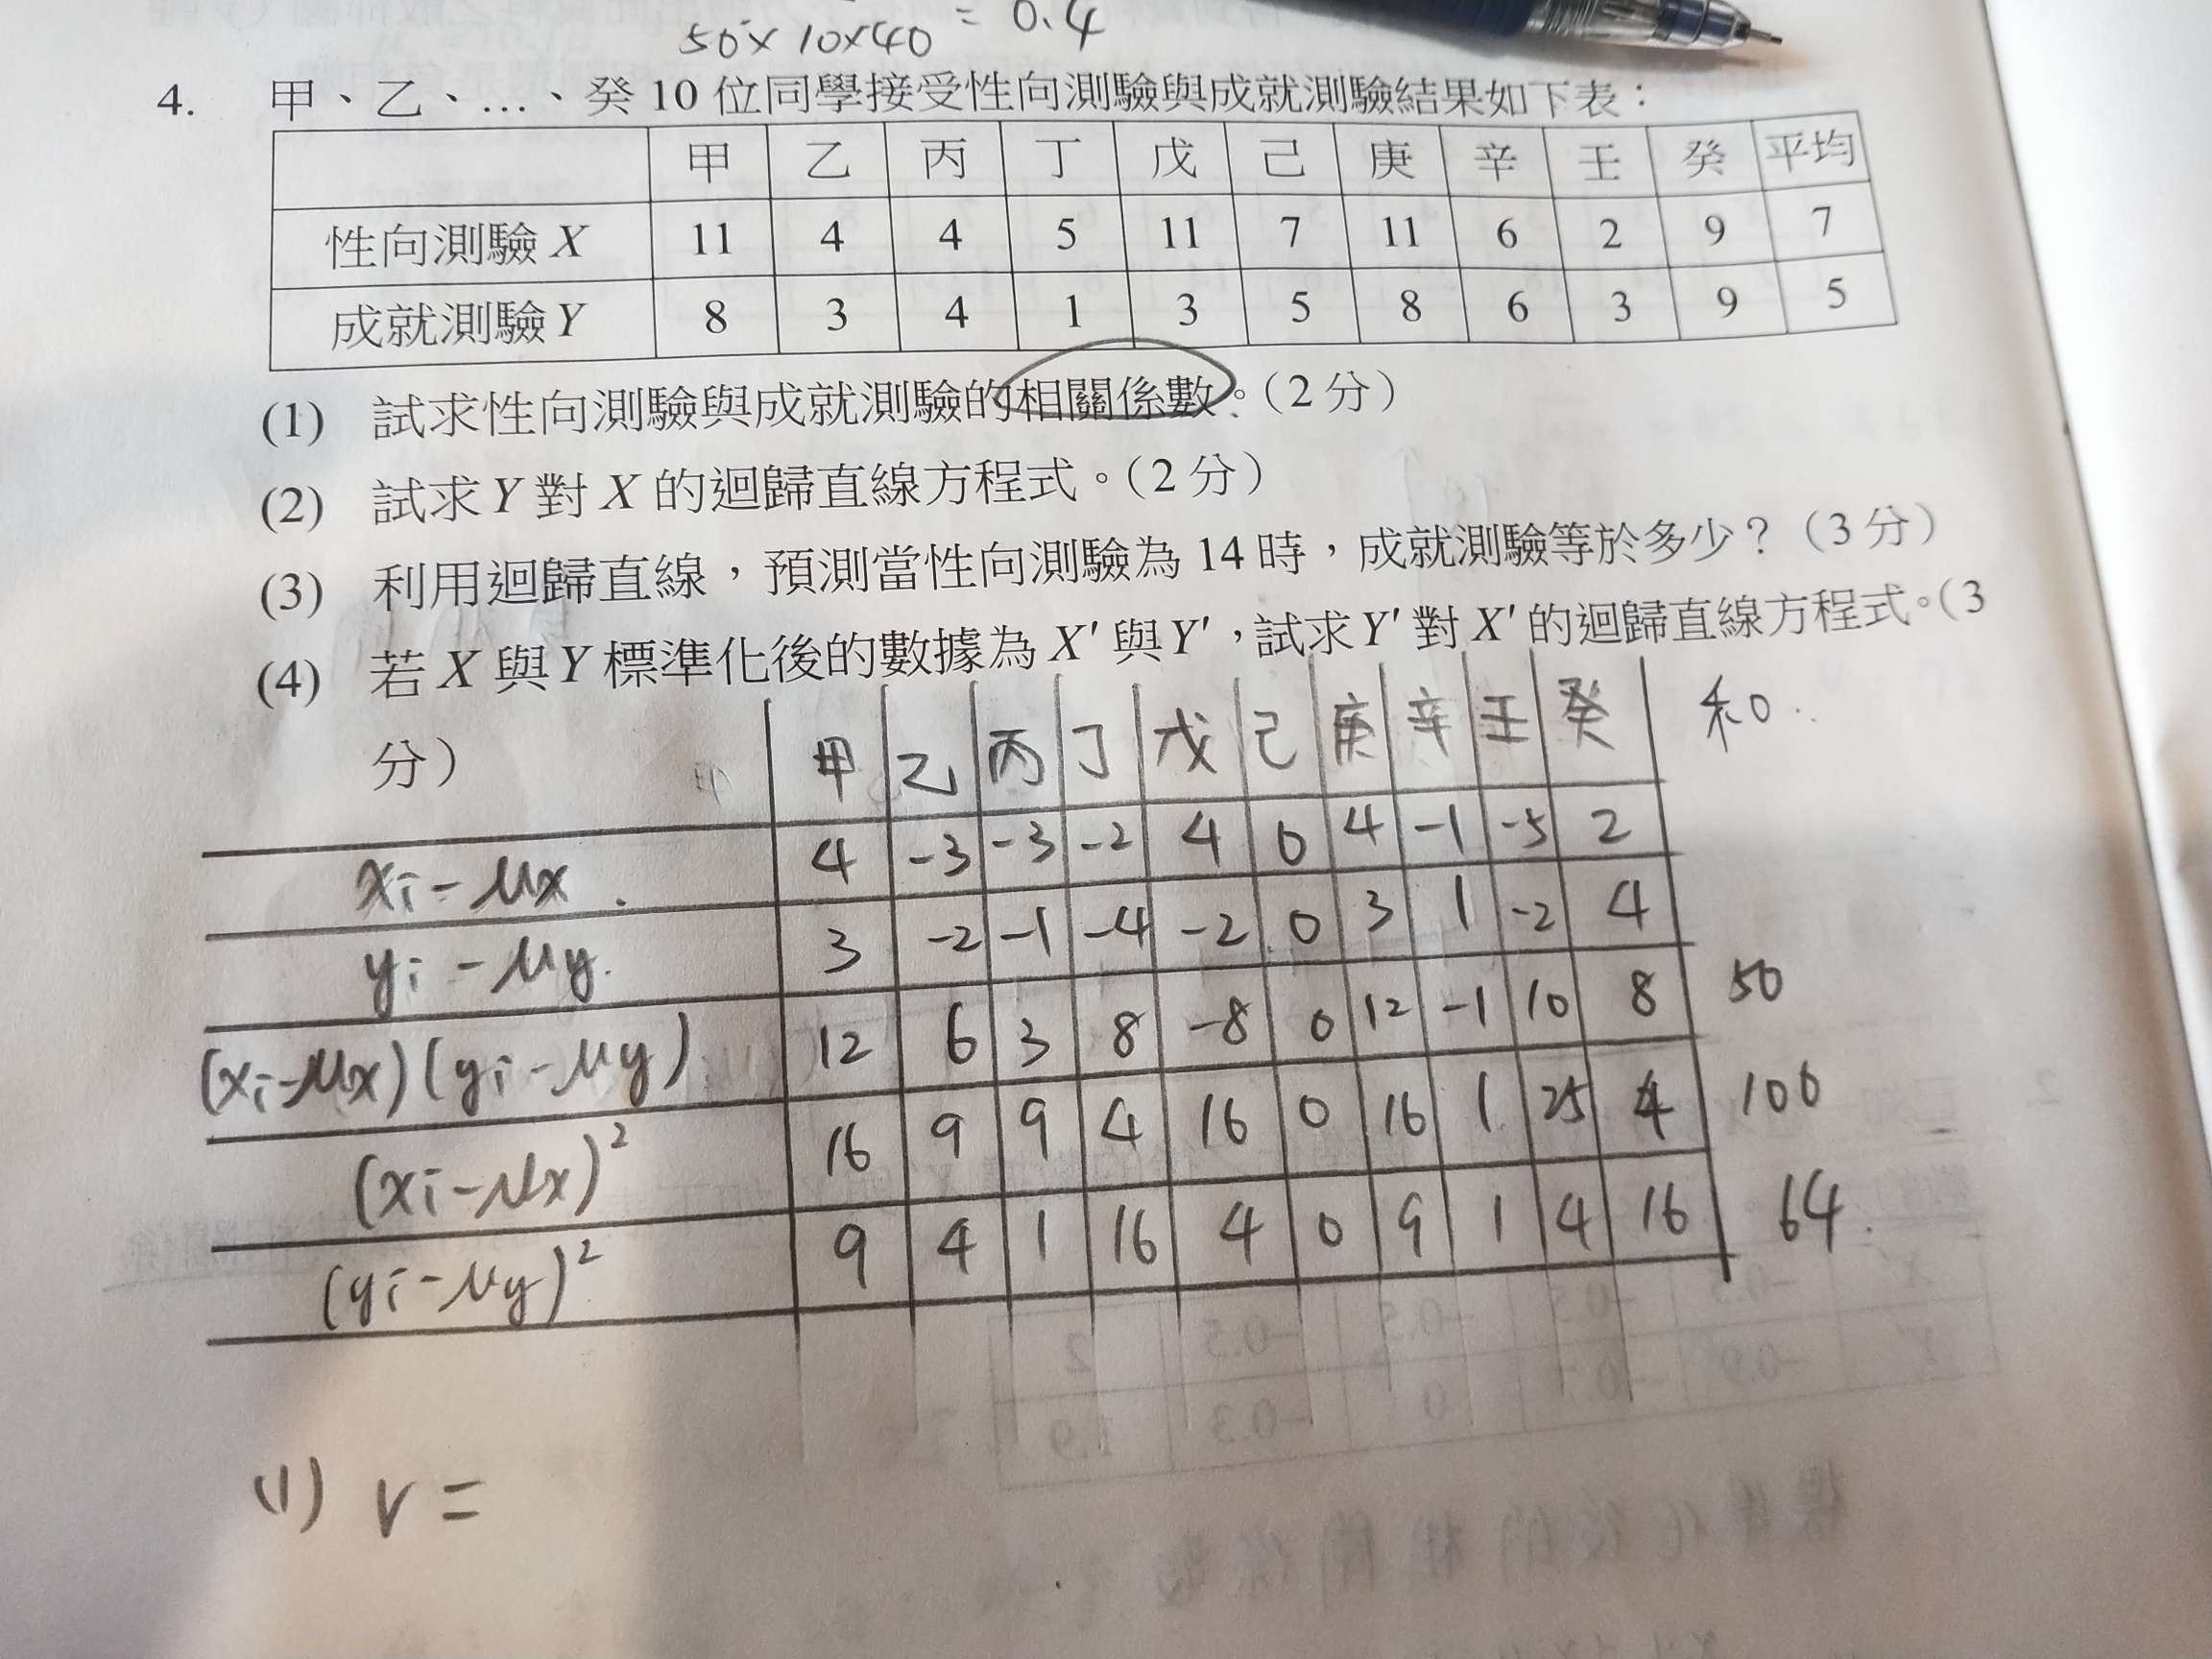 50×10×40 = 0.4
4. 甲、乙、…、癸 10 位同學接受性向測驗與成就測驗結果如下表：
甲 乙 丙 丁 戊 己 庚 辛 壬 癸 平均
性向測驗 X 11 4 4 5 11 7 11 6 2 9 7
成就測驗 Y 8 3 4 1 3 5 8 6 3 9 5
(1) 試求性向測驗與成就測驗的相關係數。（2 分）
(2) 試求 Y 對 X 的迴歸直線方程式。（2 分）
(3) 利用迴歸直線，預測當性向測驗為 14 時，成就測驗等於多少？（3 分）
(4) 若 X 與 Y 標準化後的數據為 X′ 與 Y′，試求 Y′ 對 X′ 的迴歸直線方程式。（3
分）
甲 乙 丙 丁 戊 己 庚 辛 壬 癸 和
xi - μx 4 -3 -3 -2 4 0 4 -1 -5 2
yi - μy 3 -2 -1 -4 -2 0 3 1 -2 4
(xi-μx)(yi-μy) 12 6 3 8 -8 0 12 -1 10 8 50
(xi-μx)² 16 9 9 4 16 0 16 1 25 4 100
(yi-μy)² 9 4 1 16 4 0 9 1 4 16 64
(1) r =